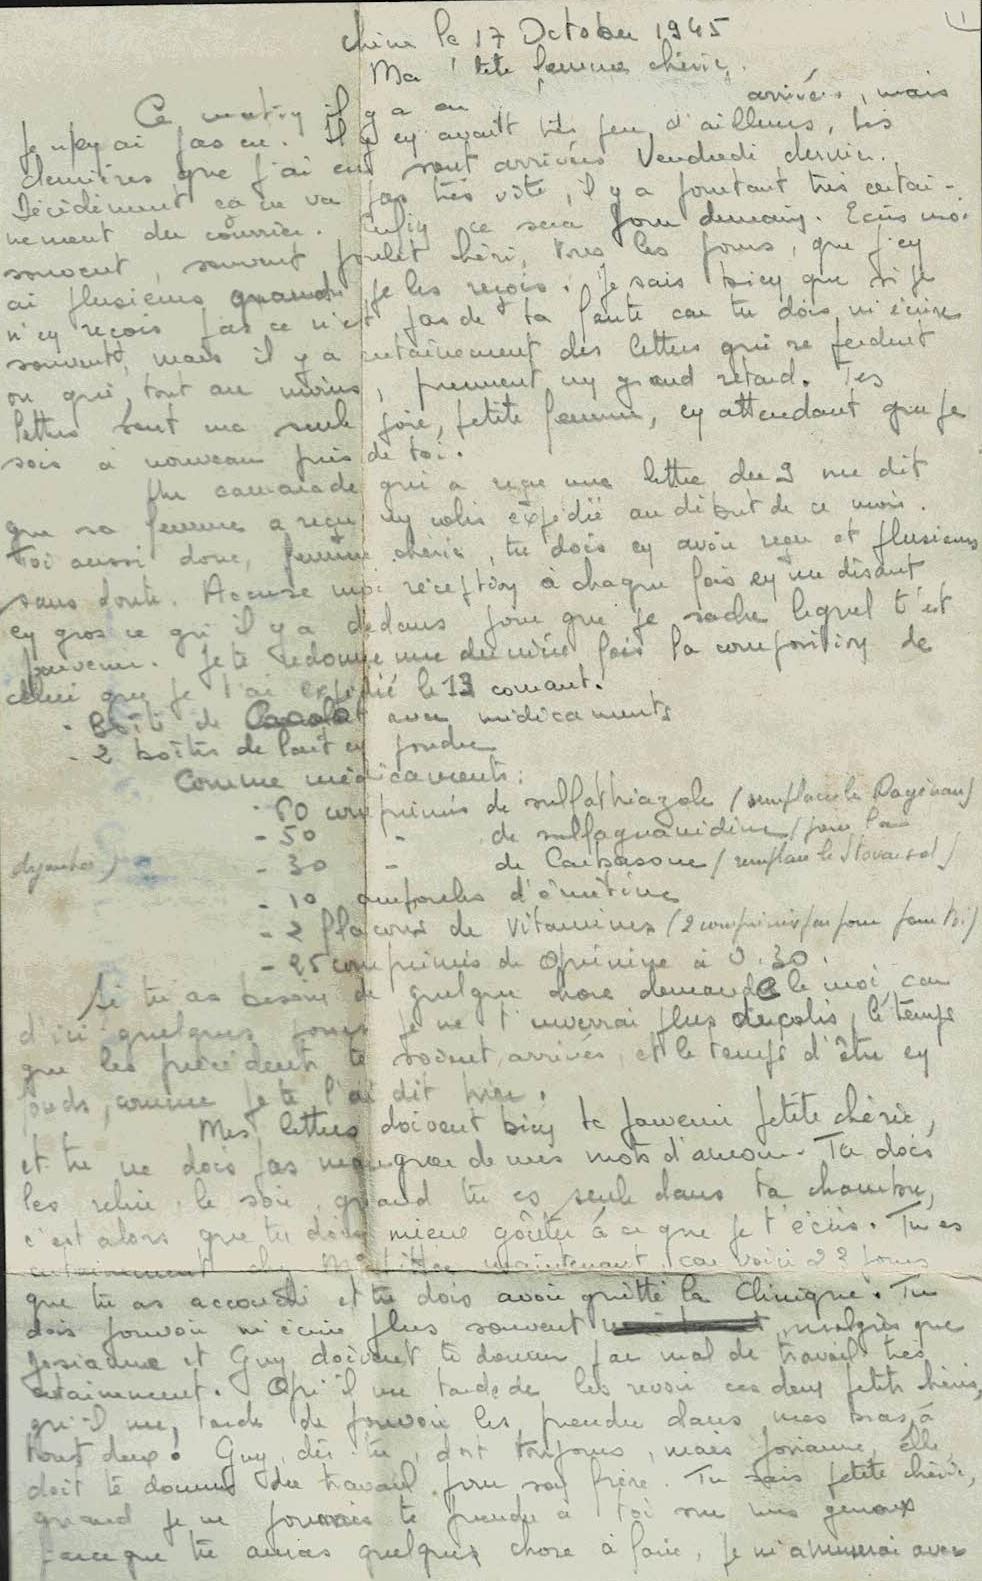 Chine le 17 Octobre 1945
Ma 'tite femme chérie,
Ce matin il y a eu arrivée, mais
je n'y ai pas eu. Il y en avait très peu d'ailleurs, les
dernières que j'ai eu sont arrivées Vendredi dernier.
Décidément ça ne va pas très vite, il y a pourtant très certai-
nement du courrier. Enfin ce sera pour demain. Ecris moi
souvent, souvent poulet chéri, tous les jours, que j'en
ai plusieurs quand je les reçois. Je sais bien que si je
n'en reçois pas ce n'est pas de ta faute car tu dois m'écrire
souvent, mais il y a certainement des lettres qui se perdent
ou qui, tout au moins, prennent un grand retard. Tes
lettres sont ma seule joie, petite femme, en attendant que je
sois à nouveau près de toi.
Un camarade qui a reçu une lettre du 9 me dit
que sa femme a reçu un colis expédié au début de ce mois.
Toi aussi donc, femme chérie, tu dois en avoir reçu et plusieurs
sans doute. Accuse moi réception à chaque fois en me disant
en gros ce qu'il y a dedans pour que je sache lequel t'est
parvenu. Je te redonne une dernière fois la composition de
celui que je t'ai expédié le 13 courant.
- Boîte de avec médicaments
- 2 boîtes de lait en poudre
Comme médicaments:
- 60 comprimés de sulfathiazole (remplace le Dagénan)
- 50 - de sulfaguanidine (pour la
dysenterie)
- 30 - de Carbasone (remplace le Stovarsol)
- 10 ampoules d'émétine
- 2 flacons de vitamines (2 comprimés par jour pour toi)
- 25 comprimés de quinine à 0.30.
Si tu as besoin de quelque chose demande le moi, car
d'ici quelques jours je ne t'enverrai plus de colis, le temps
que les précédents te soient arrivés, et le temps d'être en
fonds, comme je te l'ai dit hier.
Mes lettres doivent bien te parvenir petite chérie,
et tu ne dois pas manquer de mes mots d'amour. Tu dois
les relire, le soir, quand tu es seule dans ta chambre,
c'est alors que tu dois mieux goûter à ce que je t'écris. Tu es
certainement chez maintenant, car voici 23 jours
que tu as accouché et tu dois avoir quitté la Clinique. Tu
dois pouvoir m'écrire plus souvent malgré que
Josianne et Guy doivent te donner pas mal de travail très
certainement. Qu'il me tarde de les revoir ces deux petits chéris,
qu'il me tarde de pouvoir les prendre dans mes bras à
tous deux. Guy, dis-tu, dort toujours, mais Josianne, elle
doit te donner du travail pour son frère. Tu sais petite chérie,
quand je ne pourrais te prendre à toi sur mes genoux
parce que tu auras quelque chose à faire, je m'amuserai avec